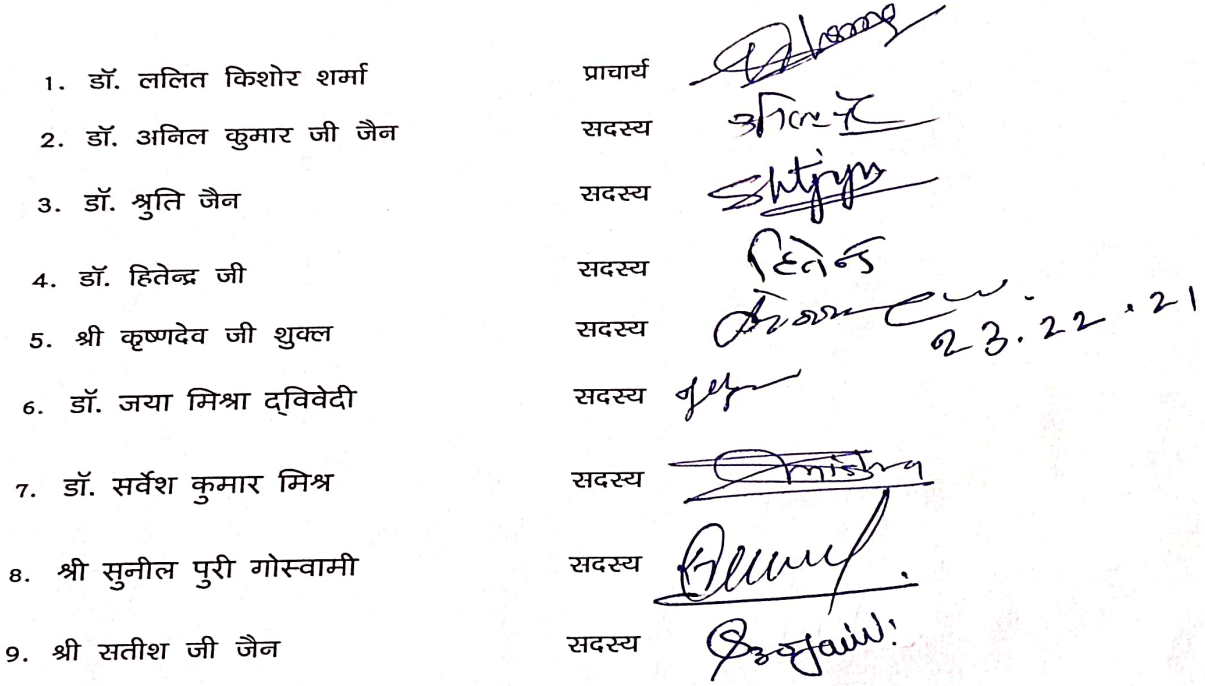 1. डॉ. ललित किशोर शर्मा प्राचार्य
2. डॉ. अनिल कुमार जी जैन सदस्य
3. डॉ. श्रुति जैन सदस्य
4. डॉ. हितेन्द्र जी सदस्य हितेन्द्र
5. श्री कृष्णदेव जी शुक्ल सदस्य 23.22.21
6. डॉ. जया मिश्रा द्विवेदी सदस्य
7. डॉ. सर्वेश कुमार मिश्र सदस्य
8. श्री सुनील पुरी गोस्वामी सदस्य
9. श्री सतीश जी जैन सदस्य